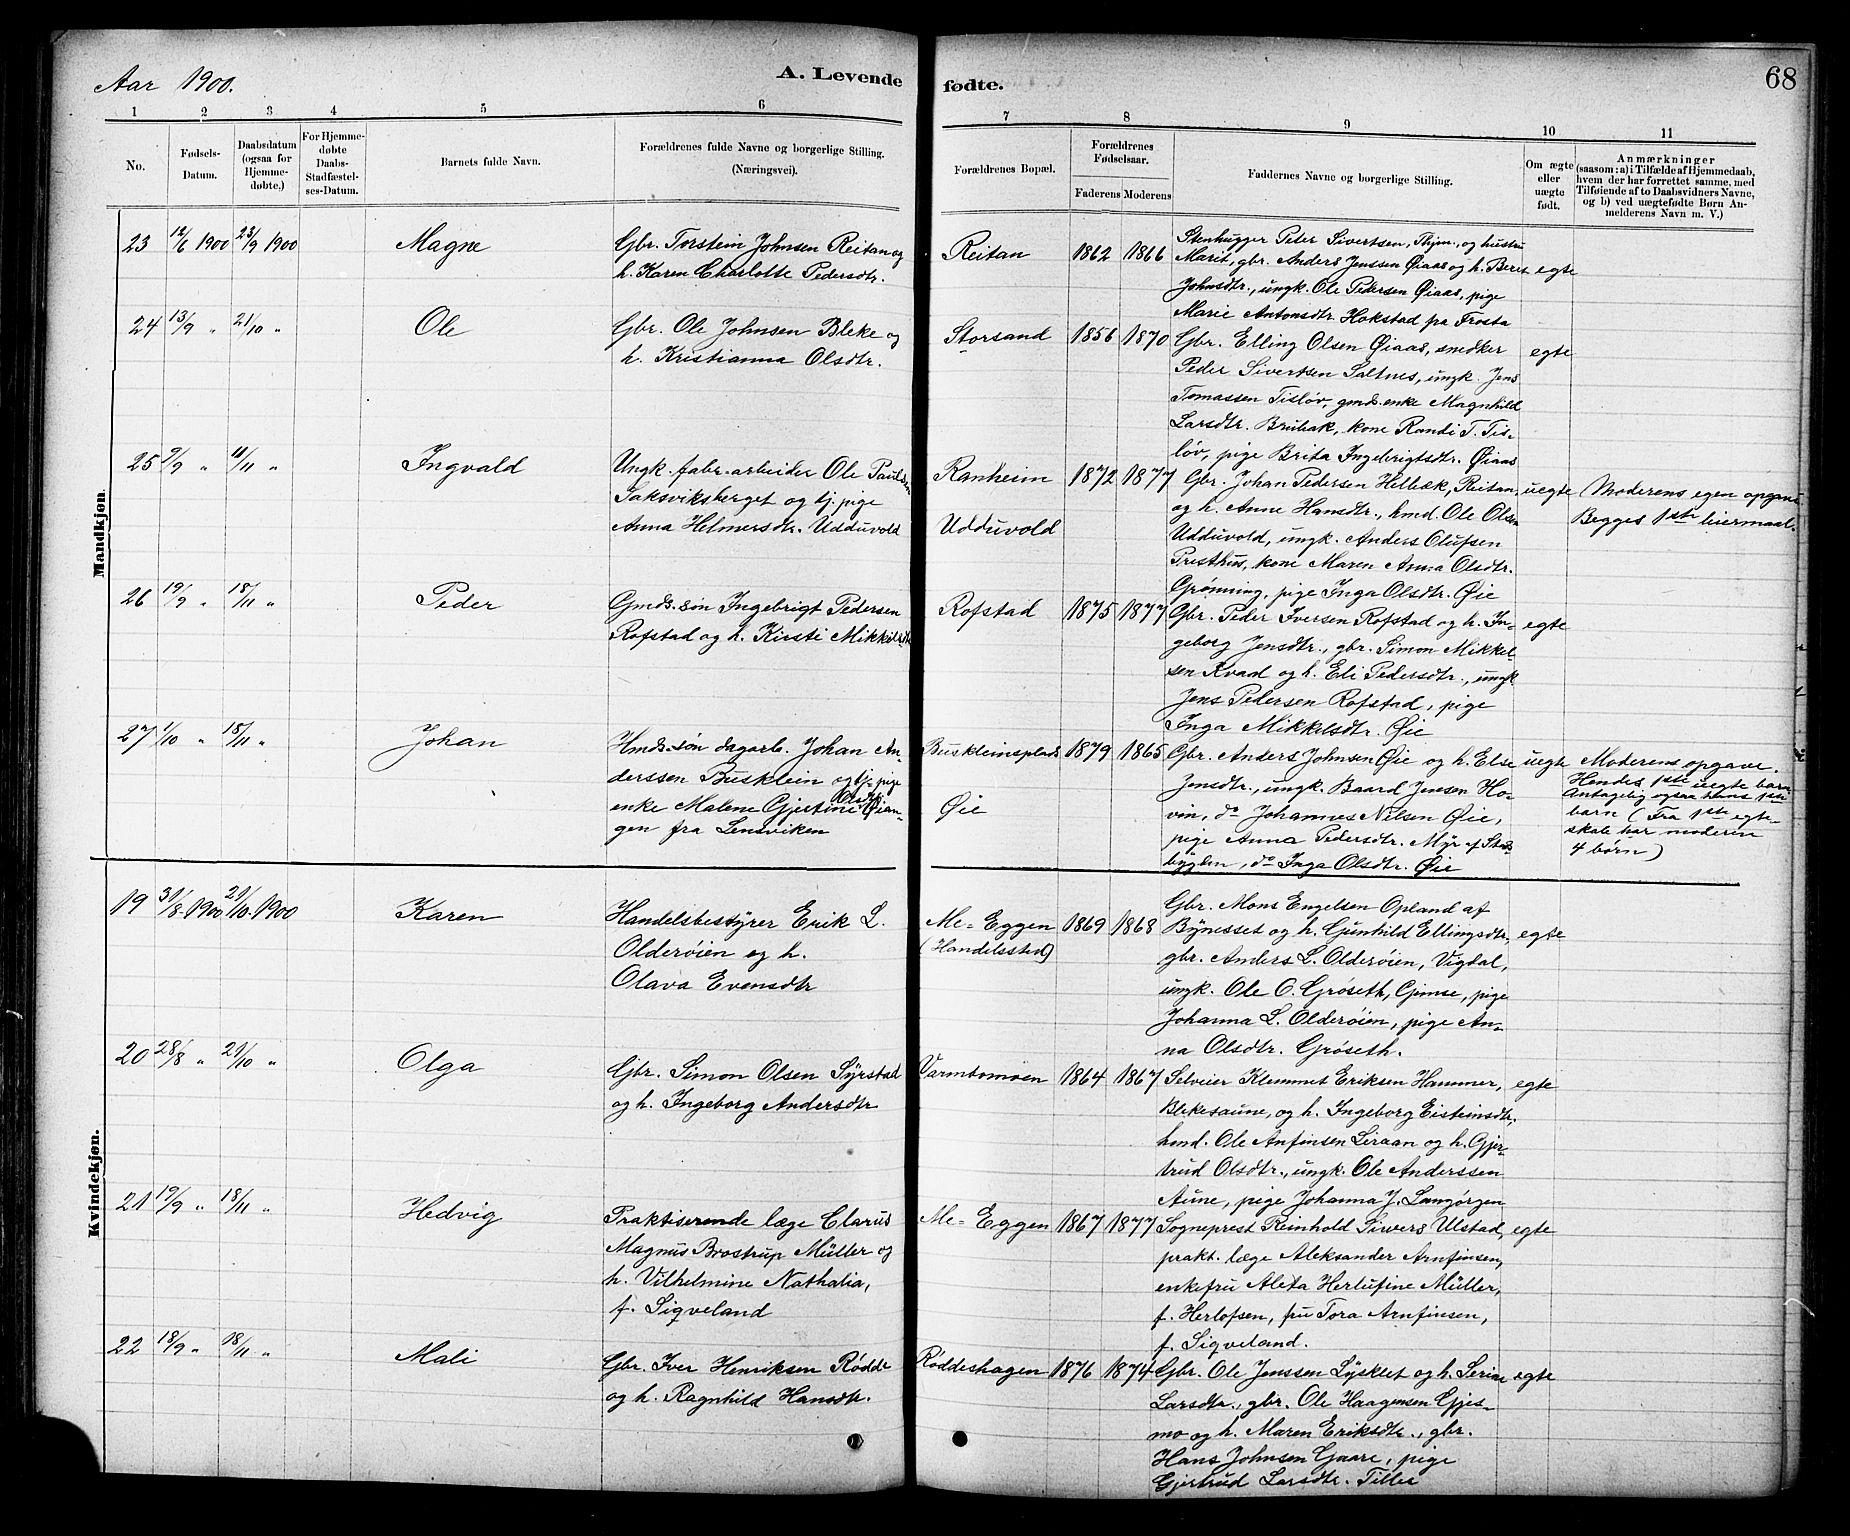 Aar 1900.
A. Levende
fødte.
68
1 2 3 4 5 6 7 8 9 10 11
No.
Fødsels-
Datum.
Daabsdatum
(ogsaa for
Hjemme-
døbte,)
For Hjemme-
døbte
Daabs-
Stadfæstel-
ses-Datum.
Barnets fulde Navn.
Forældrenes fulde Navne og borgerlige Stilling.
(Næringsvei).
Forældrenes Bopæl.
Forældrenes
Fødselsaar.
Faderens Moderens
Faddernes Navne og borgerlige Stilling.
Om ægte
eller
uægte
født.
Anmærkninger
(saasom: a) i Tilfælde af Hjemmedaab,
hvem der har forrettet samme, med
Tilføiende af to Daabsvidners Navne,
og b) ved uægtefødte Børn An-
melderens Navn m. V.)
Mandkjøn
23 12/6 1900 23/9 1900 Magne
Gbr. Torstein Johnsen Reitan og
h. Karen Charlotte Pedersdtr.
Reitan 1862 1866
Stenhugger Peter Sivertsen, Thjem, og hustru
Marit, gbr. Anders Jenssen Øiaas og h. Beret
Johnsdtr., ungk. Ole Pedersen Øiaas, pige
Marie Antonsdtr. Hokstad fra Frosta
egte
24 13/9 " 21/10 " Ole
Gbr. Ole Johnsen Bleke og
h. Kristianna Olsdtr.
Storsand 1856 1870
Gbr. Elling Olsen Øiaas, snedker
Peder Sivertsen Saltnes, ungk. Jens
Tomassen Tisløv, gmds.enke Magnhild
Larsdtr. Brubak, kone Randi T. Tis-
løv, pige Brita Ingebrigtsdtr. Øiaas
egte
25 9/9 " 11/11 " Ingvald
Ungk. fabr.arbeider Ole Paulsen
Saksviksberget og tj. pige
Anna Helmersdtr. Udduvold
Ranheim
Udduvold
1872 1877
Gbr. Johan Pedersen Helbæk, Reitan,
og h. Anne Hansdtr., hmd. Ole Olsen
Udduvold, ungk. Anders Olufsen
Presthus, kone Maren Anna Olsdtr.
Grønning, pige Inga Olsdtr. Øie
uegte
Moderens egen opgave
Begges 1ste leiermaal.
26 19/9 " 18/11 " Peder
Gmds.søn Ingebrigt Pedersen
Rofstad og h. Kirsti Mikkelsdtr
Rofstad 1875 1877
Gbr. Peder Iversen Rofstad og h. In-
geborg Jensdtr., gbr. Simon Mikkel-
sen Kvad og h. Eli Pedersdtr., ungk.
Jens Pedersen Rofstad, pige
Inga Mikkelsdtr. Øie
egte
27 1/10 " 18/11 " Johan
Hmds.søn dagarb. Johan An-
derssen Busklein og tj. pige
enke Malene Gjertine Olsdtr. Øian-
gen fra Lensviken
Buskleinsplads
Øie
1879 1865
Gbr. Anders Johnsen Øie og h. Else
Jensdtr., ungk. Baard Jensen Ho-
vin, do Johannes Nilsen Øie,
pige Anna Pedersdtr. Myr af Stads-
bygden, do Inga Olsdtr. Øie
uegte
Moderens opgave.
Hendes 1ste uegte barn.
Antagelig ogsaa hans 1ste
barn (Fra 1ste egte-
skab har moderen
4 børn)
Kvindekjøn.
19 31/8 1900 21/10 1900 Karen
Handelsbestyrer Erik L.
Olderøien og h.
Olava Evensdtr
Me-Eggen
(Handelssted)
1869 1868
Gbr. Mons Engelsen Opland af
Bynesset og h. Gunhild Ellingsdtr,
gbr. Anders L. Olderøien, Vigdal,
ungk. Ole O. Grøseth, Gimse, pige
Johanna L. Olderøien, pige An-
na Olsdtr. Grøseth.
egte
20 28/8 " 21/10 " Olga
Gbr. Simon Olsen Syrstad
og h. Ingeborg Andersdtr
Varmbomoen 1864 1867
Selveier Klemmet Eriksen Hammer,
Blekesaune, og h. Ingeborg Eisteinsdtr.,
hmd. Ole Anfinsen Leraan og h. Gjer-
trud Olsdtr., ungk. Ole Anderssen
Aune, pige Johanna J. Langørgen
egte
21 19/9 " 18/11 " Hedvig
Praktiserende læge Clarus
Magnus Brostrup Müller og
h. Vilhelmine Nathalia,
f. Siqveland
Me-Eggen 1867 1877
Sogneprest Reinhold Sivers Ulstad,
prakt. læge Aleksander Arnfinsen,
enkefru Aleta Herlufine Müller,
f. Herlofsen, fru Tora Arnfinsen,
f. Siqveland.
egte
22 18/9 " 18/11 " Mali
Gbr. Iver Henriksen Rødde
og h. Ragnhild Hansdtr.
Røddeshagen 1876 1874
Gbr. Ole Jenssen Lysklet og h. Serine
Larsdtr., gbr. Ole Haagensen Gjes-
mo og h. Maren Eriksdtr., gbr.
Hans Johnsen Gaare, pige
Gjertrud Larsdtr. Tiller
egte